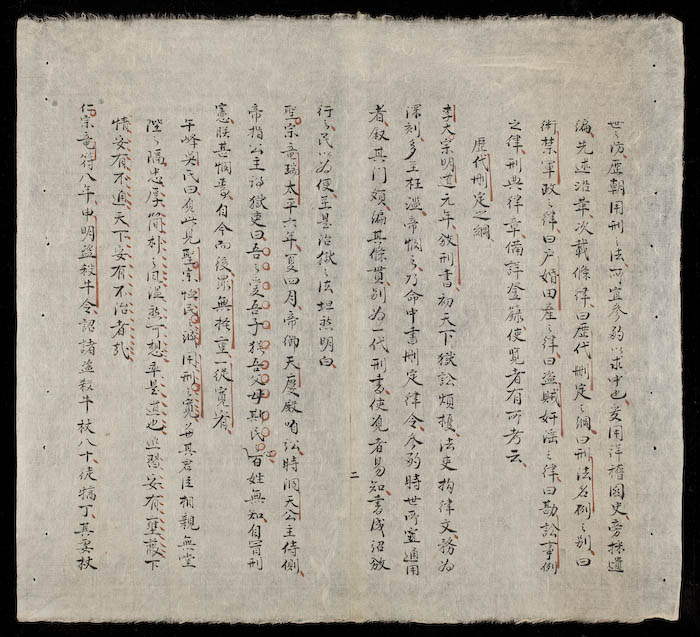 世之防歷朝用刑之法所宜參酌以求中也爰用詳稽國史旁採遺
編先述沿革次載條律曰歷代刪定之綱曰刑法名例之別曰
衛禁軍政之律曰户婚田產之律曰盜賊奸淫之律曰勘訟事例
之律刑典律章備詳登錄使覽者有所考云
歷代刪定之綱
李太宗明道元年放刑書初天下獄訟煩擾法吏拘律文務為
深刻多主枉濫帝憫之乃命中書刪定律令參酌時世所宜適用
者叙其門類編其條貫別為一代刑書使覽者易知書成詔放
二
行之民以為便至是治獄之法坦然明白
聖宗竜瑞太平六年夏四月帝御天慶殿听訟時洞天公主侍側
帝指公主謂獄吏曰吾之愛吾子猶吾父母斯民百姓無知自冒刑
憲朕甚憫焉自今而後罪無輕重一從寬宥
午峰吴氏曰此見聖宗恤民之誠用刑之寬若其君臣相親無堂
陛之隔忠厚簡朴之溫然可想是道也安有聖蔽下
情安有不通天下安有不治者哉
仁宗竜符八年申明盜殺牛令詔諸盜殺牛杖八十徒犒丁其妻杖